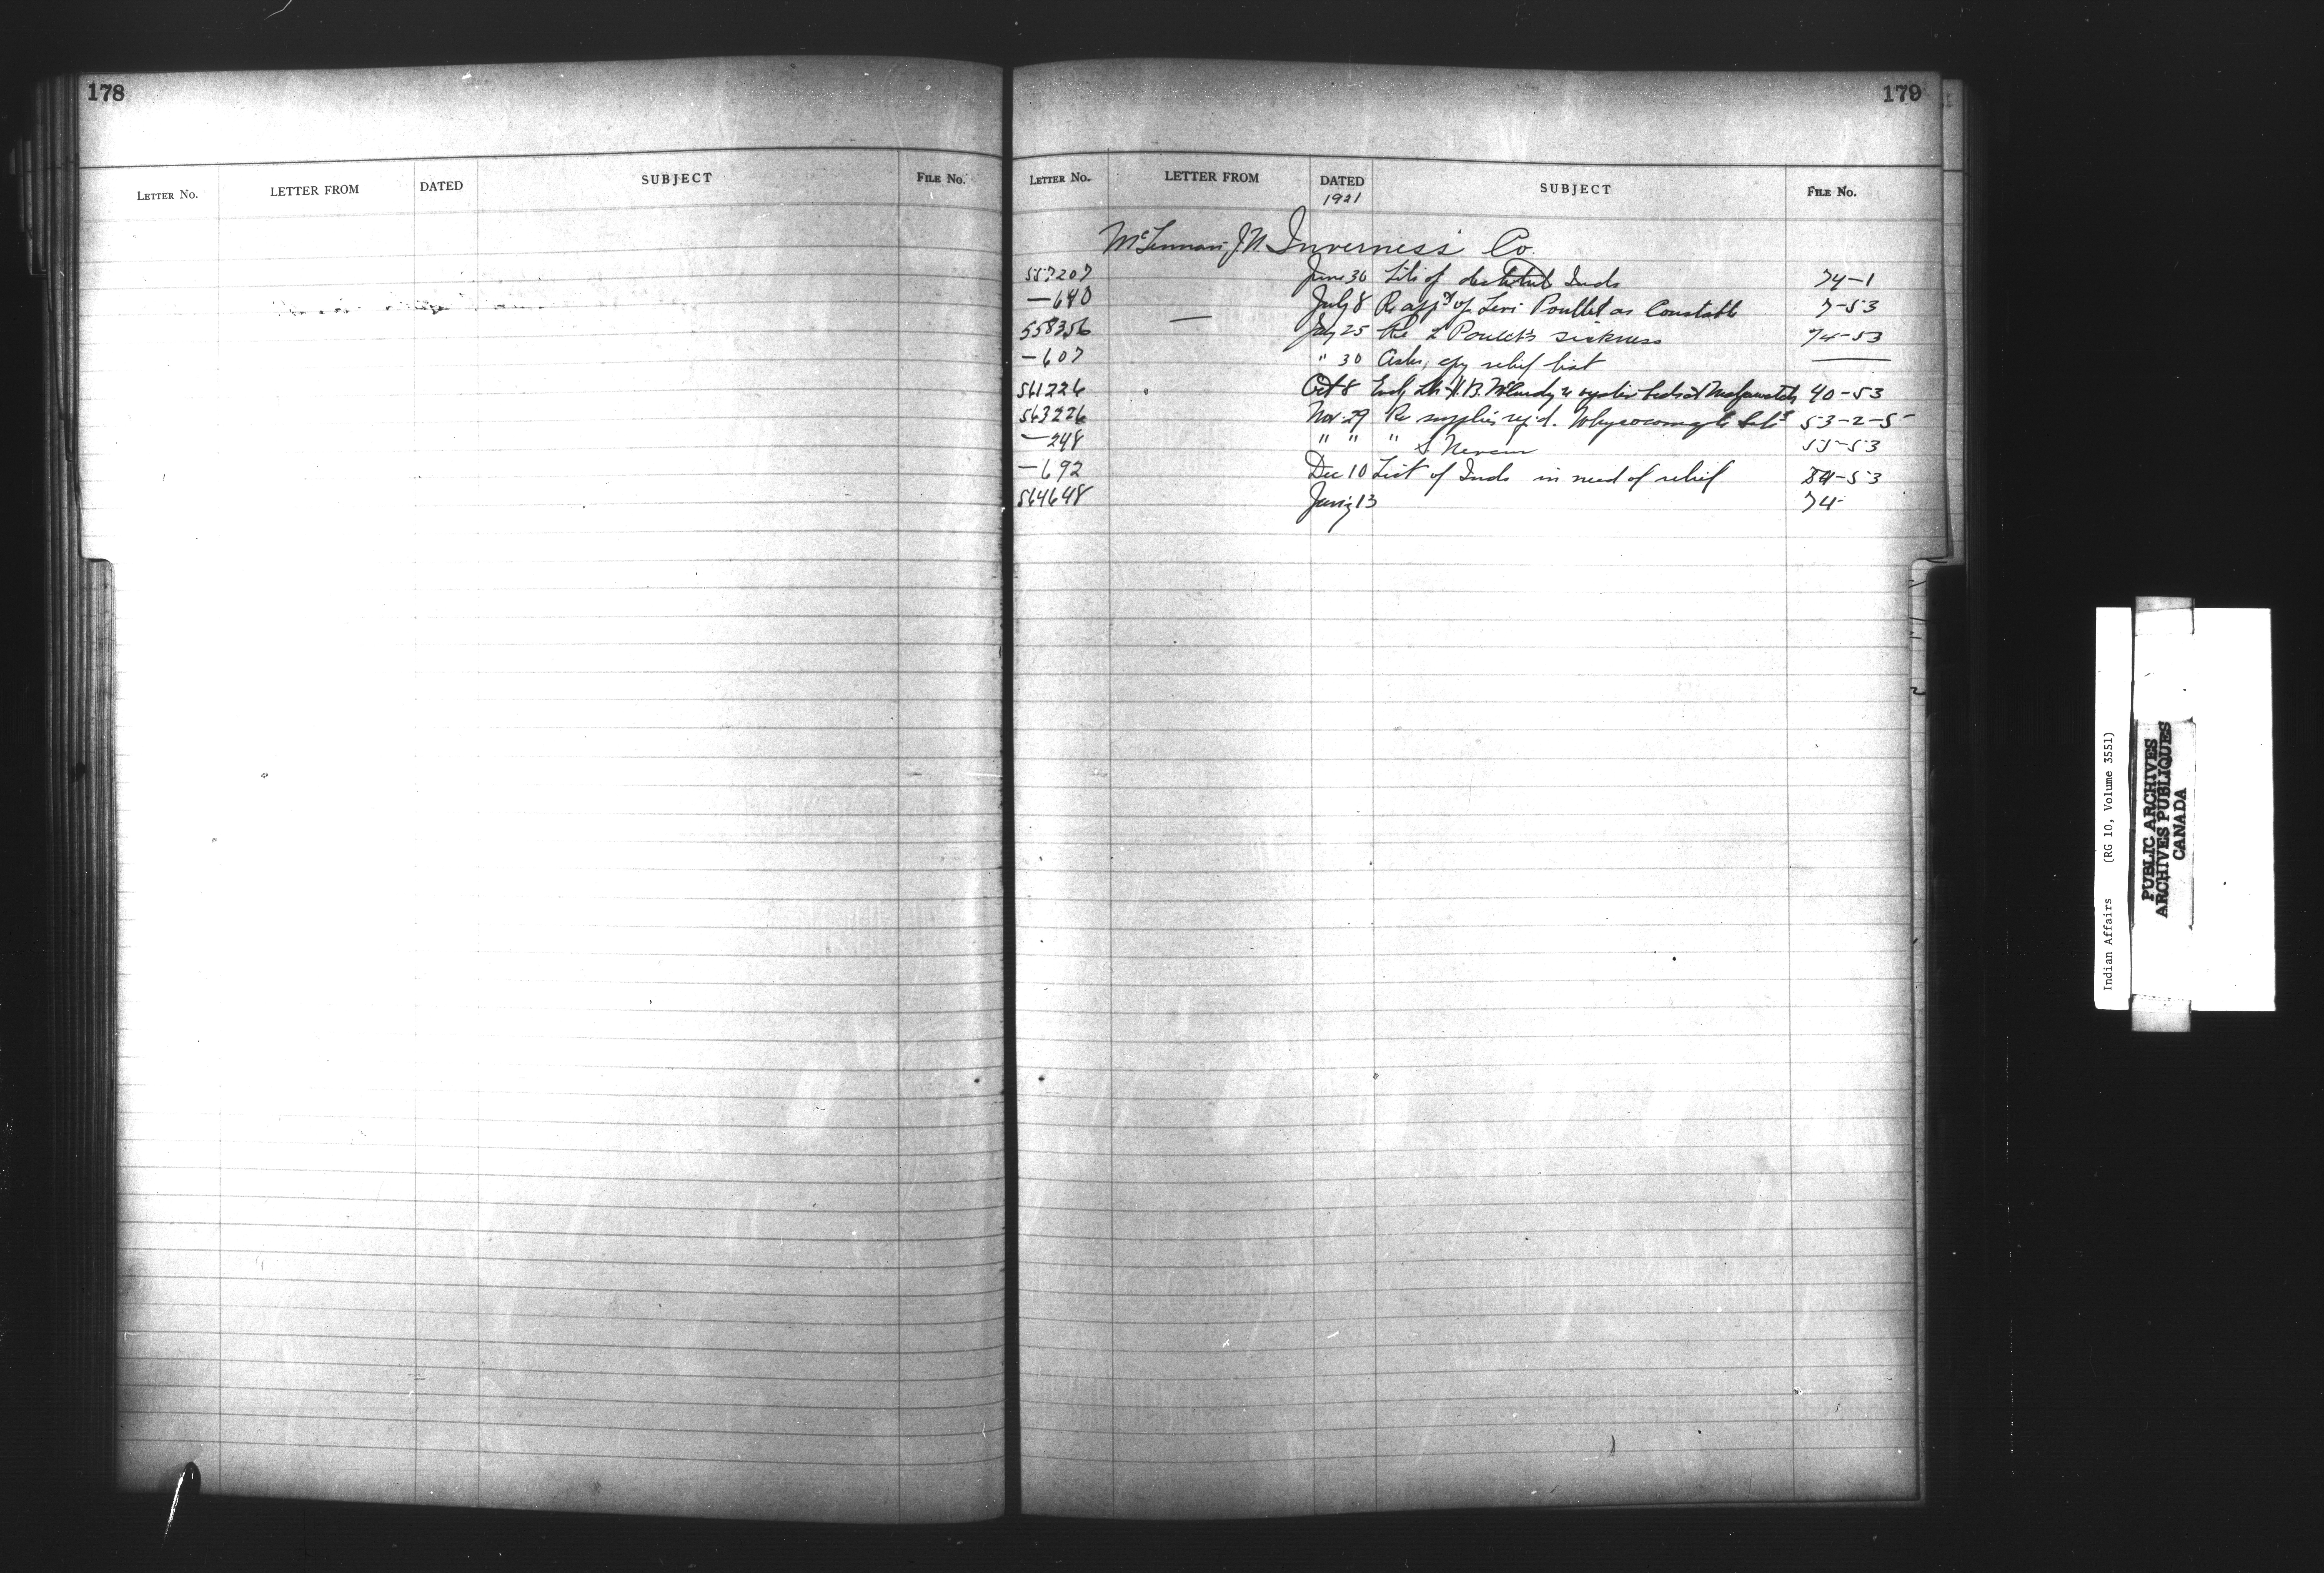 178
LETTER NO. LETTER FROM DATED SUBJECT FILE NO.
179
LETTER NO. LETTER FROM DATED SUBJECT FILE NO.
1921
McLennan J.N. Inverness Co.
557207 June 30 Lits of destitute Inds 74-1
—640 July 8 Re app't of Levi Poullet as Constable 7-53
558356 — July 25 Re L Poulet's sickness 74-53
—607 " 30 Asks, relief list ——
561226 Oct 8 H.B. McCurdy re oyster beds at 40-53
563226 Nov. 29 Re supplies req'd. Whycocomagh 53-2-5
—248 " " " S 55-53
—692 Dec 10 List of Inds in need of relief 54-53
564648 13 74-
Indian Affairs (RG 10, Volume 3551)
PUBLIC ARCHIVES
ARCHIVES PUBLIQUES
CANADA